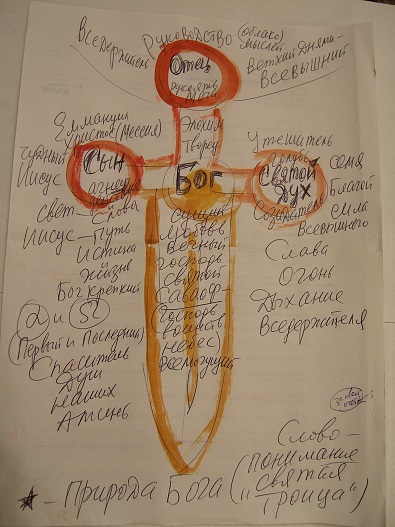 Руководство (облако)
мыслей
Вседержитель
Ветхий Днями-
Всевышний
Отец
рукоять
меча
Элохим
Творец
Бог
Эманация
Христос (Мессия)
Сын
агнец
Иисус
Свет-
слова
Иисус-путь
Истина
жизнь
Бог крепкий
α и Ω
(Первый и Последний)
Спаситель
Душ
наших
Аминь
Любовь
Вечный
господь
святой
Саваоф-
(Господь
воинств
небес)
Всемогущий
Утешитель
Святой
Дух
Созидатель
семя
Благой
сила
Всевышнего
Слава
Огонь
Дыхание
Вседержителя
Слово-
понимание
("Святая
Троица")
- Природа Бога